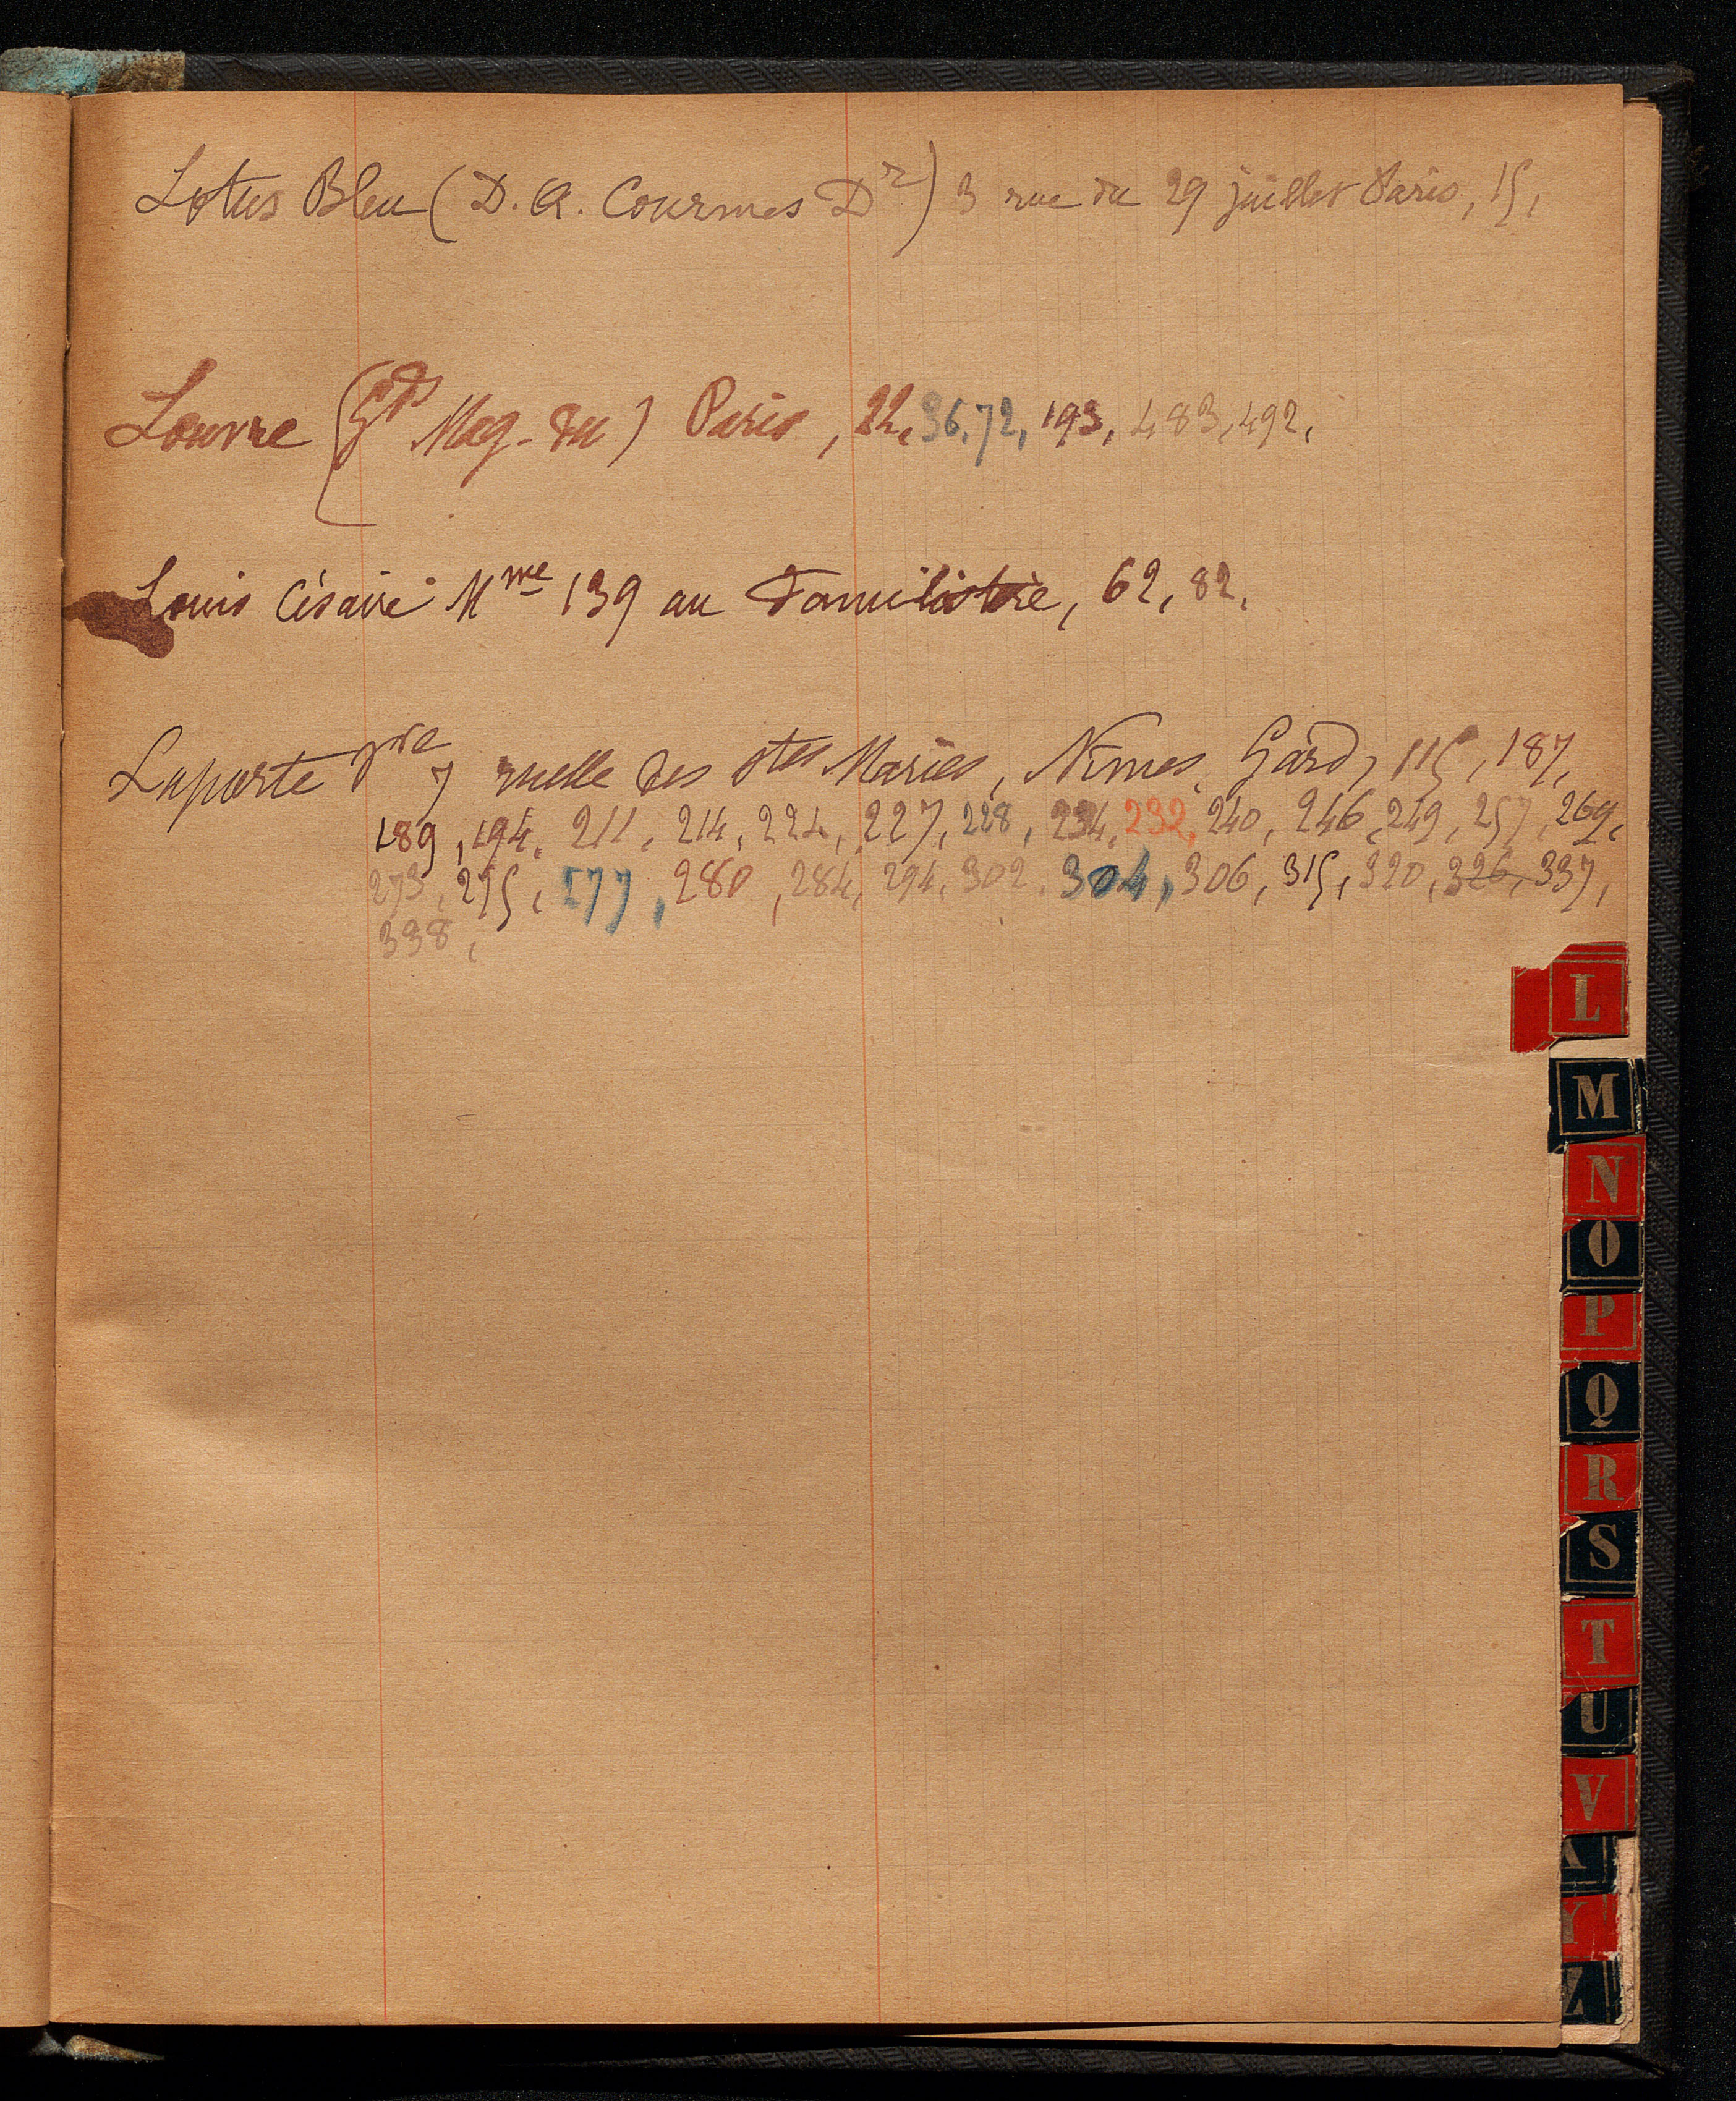 Lotus Bleu (D. A. Courmes Dr) 3 rue du 29 juillet Paris, 15,
Louvre (Gds Mag. du) Paris, 22, 36, 72, 193, 483, 492,
Louis Césaire Mme 139 au Familistère, 62, 82,
Laporte Pre 7 ruelle des Stes Maries, Nîmes, Gard, 115, 187,
189, 194, 211, 214, 224, 227, 228, 234, 232, 240, 246, 249, 257, 269,
273, 275, 277, 280, 284, 294, 302, 304, 306, 315, 320, 326, 337,
338,
L
M
N
O
P
Q
R
S
T
U
V
X
Y
Z